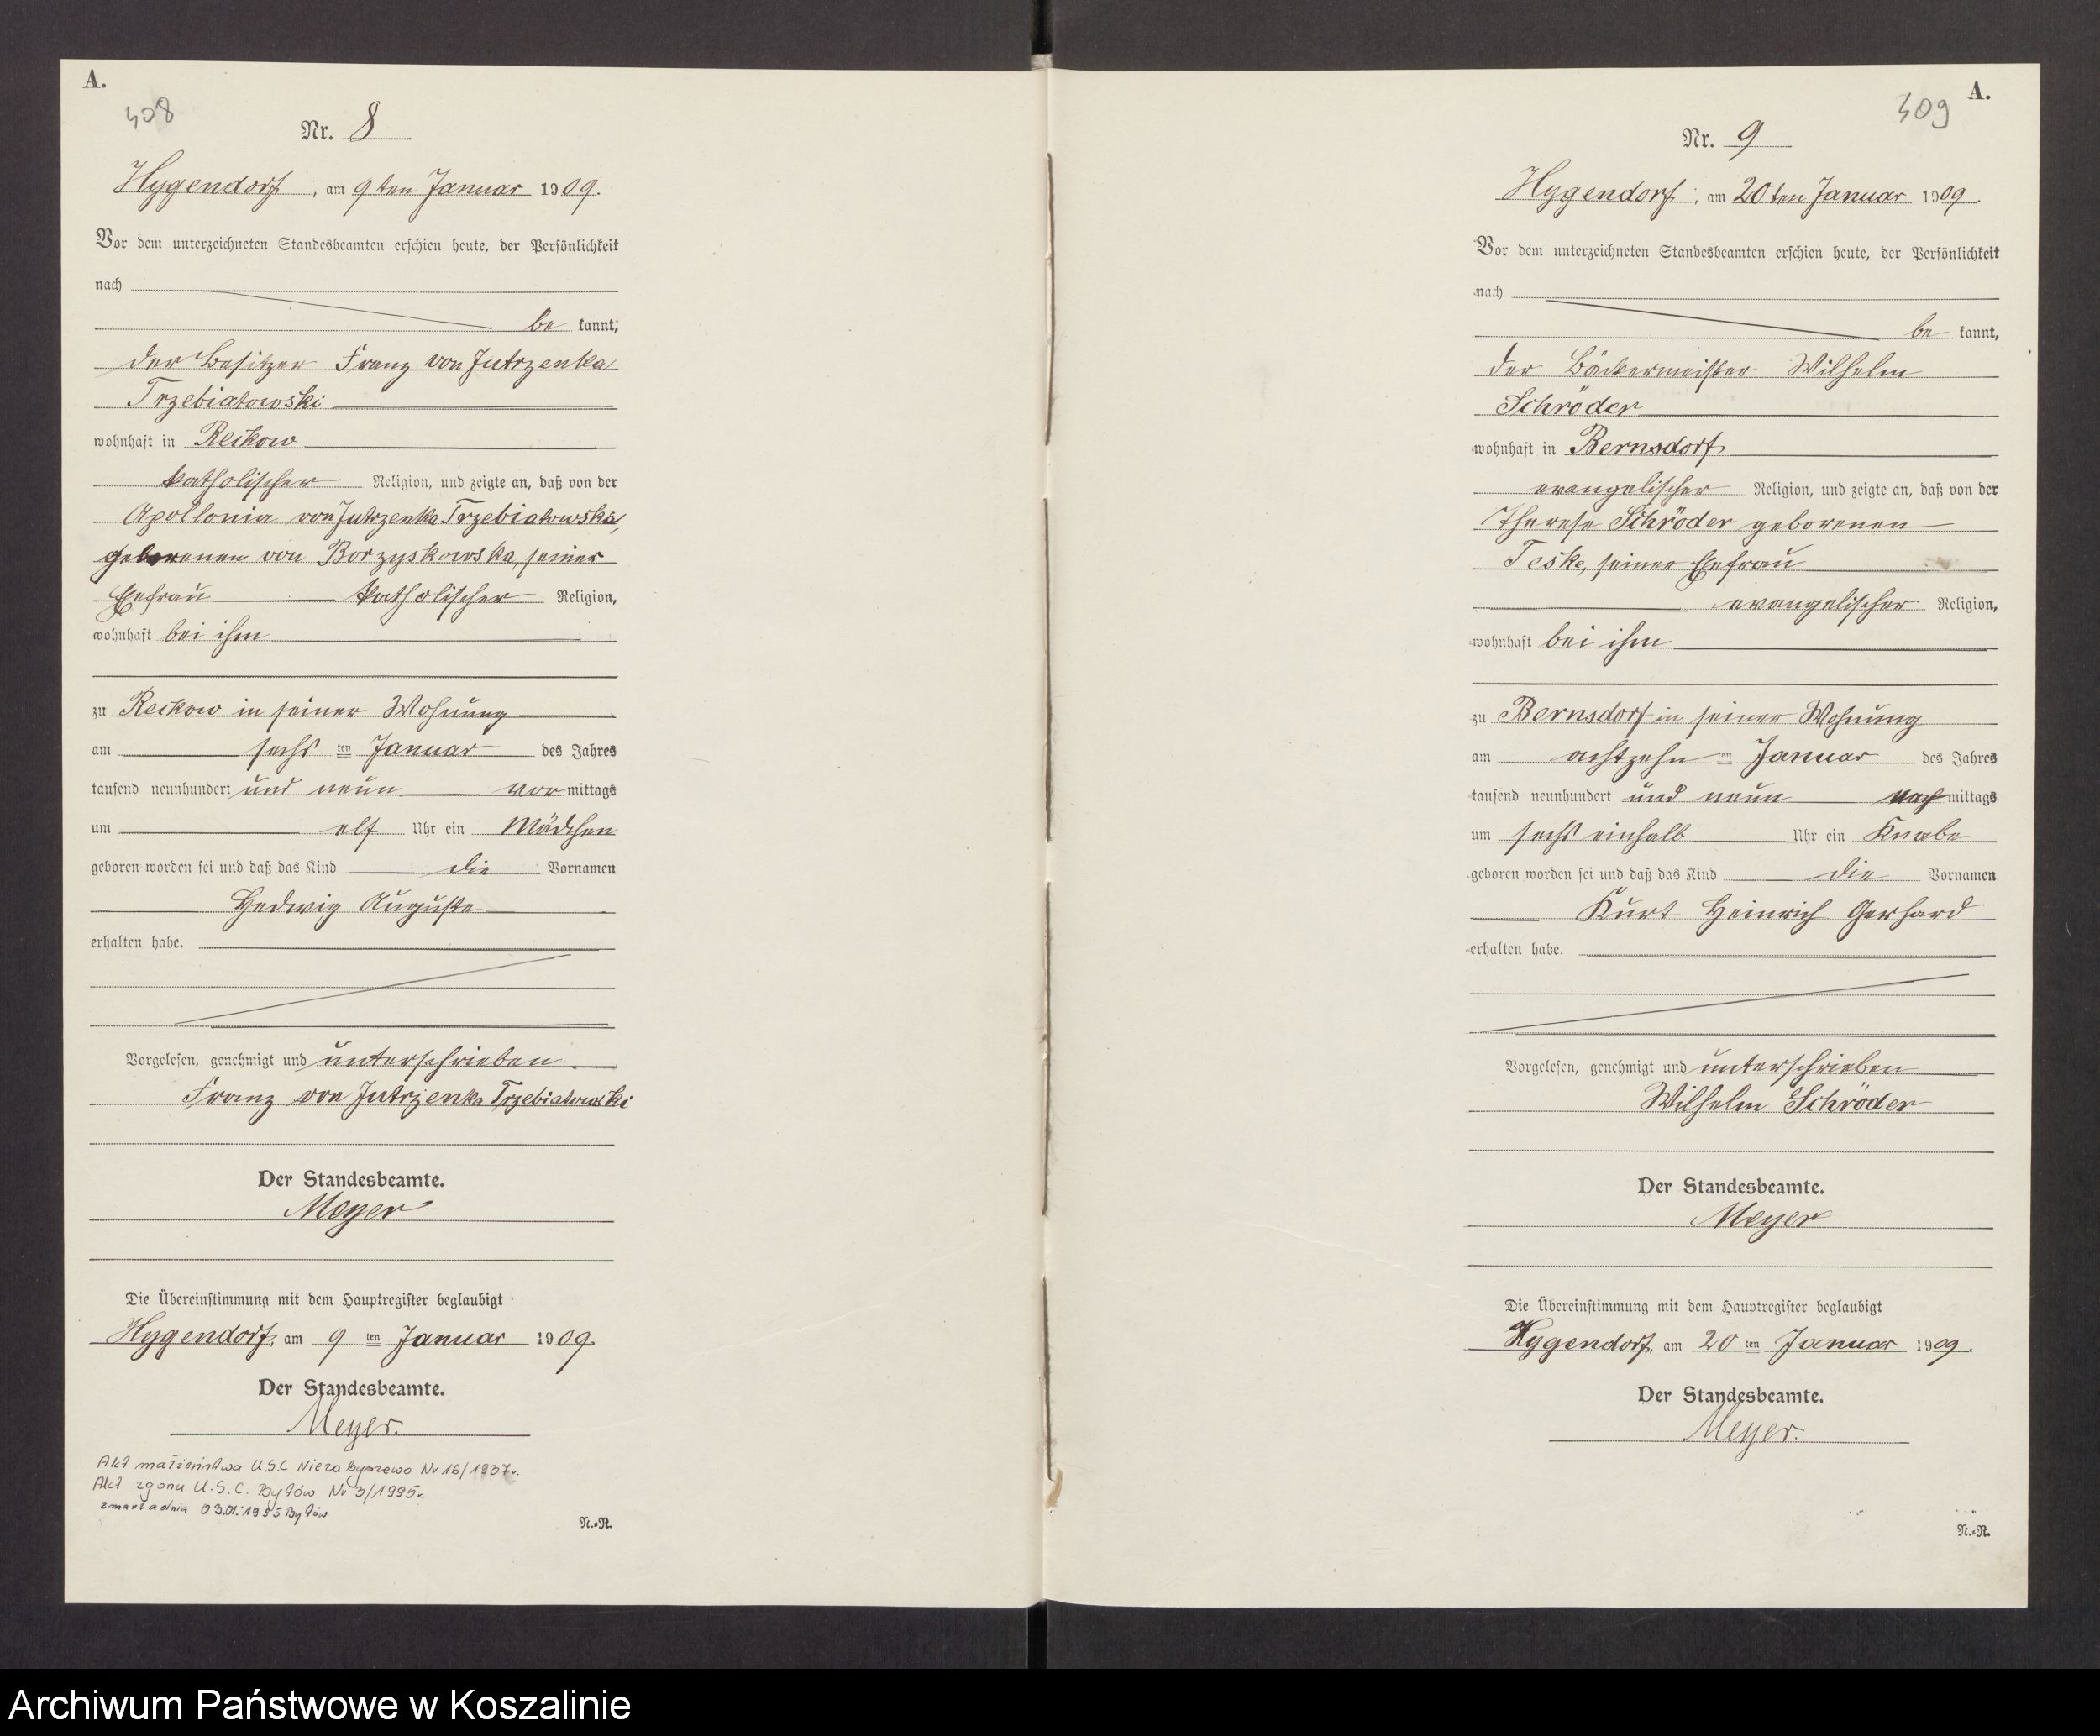 A.
408
Nr. 8
Hygendorf, am 9ten Januar 1909.
Vor dem unterzeichneten Standesbeamten erschien heute, der Persönlichkeit
nach
be kannt,
der Besitzer Franz von Jutrzenka
Trzebiatowski
wohnhaft in Reckow
katholischer Religion, und zeigte an, daß von der
Apollonia von Jutrzenka Trzebiatowska,
geborenen von Borzyskowska, seiner
Ehefrau katholischer Religion,
wohnhaft bei ihm
zu Reckow in seiner Wohnung
am sechs ten Januar des Jahres
tausend neunhundert und neun vor mittags
um elf Uhr ein Mädchen
geboren worden sei und daß das Kind die Vornamen
Hedwig Auguste
erhalten habe.
Vorgelesen, genehmigt und unterschrieben
Franz von Jutrzenka Trzebiatowski
Der Standesbeamte.
Meyer
Die Übereinstimmung mit dem Hauptregister beglaubigt
Hygendorf, am 9 ten Januar 1909.
Der Standesbeamte.
Meyer.
Akt małżeństwa U.S.C Niezabyszewo Nr 16/1937r.
Akt zgonu U.S.C. Bytów Nr 3/1995r.
zmarła dnia 03.01.1995 Bytów
N.-R.
A.
409
Nr. 9
Hygendorf, am 20ten Januar 1909.
Vor dem unterzeichneten Standesbeamten erschien heute, der Persönlichkeit
nach
be kannt,
der Bäckermeister Wilhelm
Schröder
wohnhaft in Bernsdorf
evangelischer Religion, und zeigte an, daß von der
Therese Schröder geborenen
Teske, seiner Ehefrau
evangelischer Religion,
wohnhaft bei ihm
zu Bernsdorf in seiner Wohnung
am achtzehn ten Januar des Jahres
tausend neunhundert und neun nach mittags
um sechs einhalb Uhr ein Knabe
geboren worden sei und daß das Kind die Vornamen
Kurt Heinrich Gerhard
erhalten habe.
Vorgelesen, genehmigt und unterschrieben
Wilhelm Schröder
Der Standesbeamte.
Meyer
Die Übereinstimmung mit dem Hauptregister beglaubigt
Hygendorf, am 20 ten Januar 1909.
Der Standesbeamte.
Meyer.
N.-R.
Archiwum Państwowe w Koszalinie